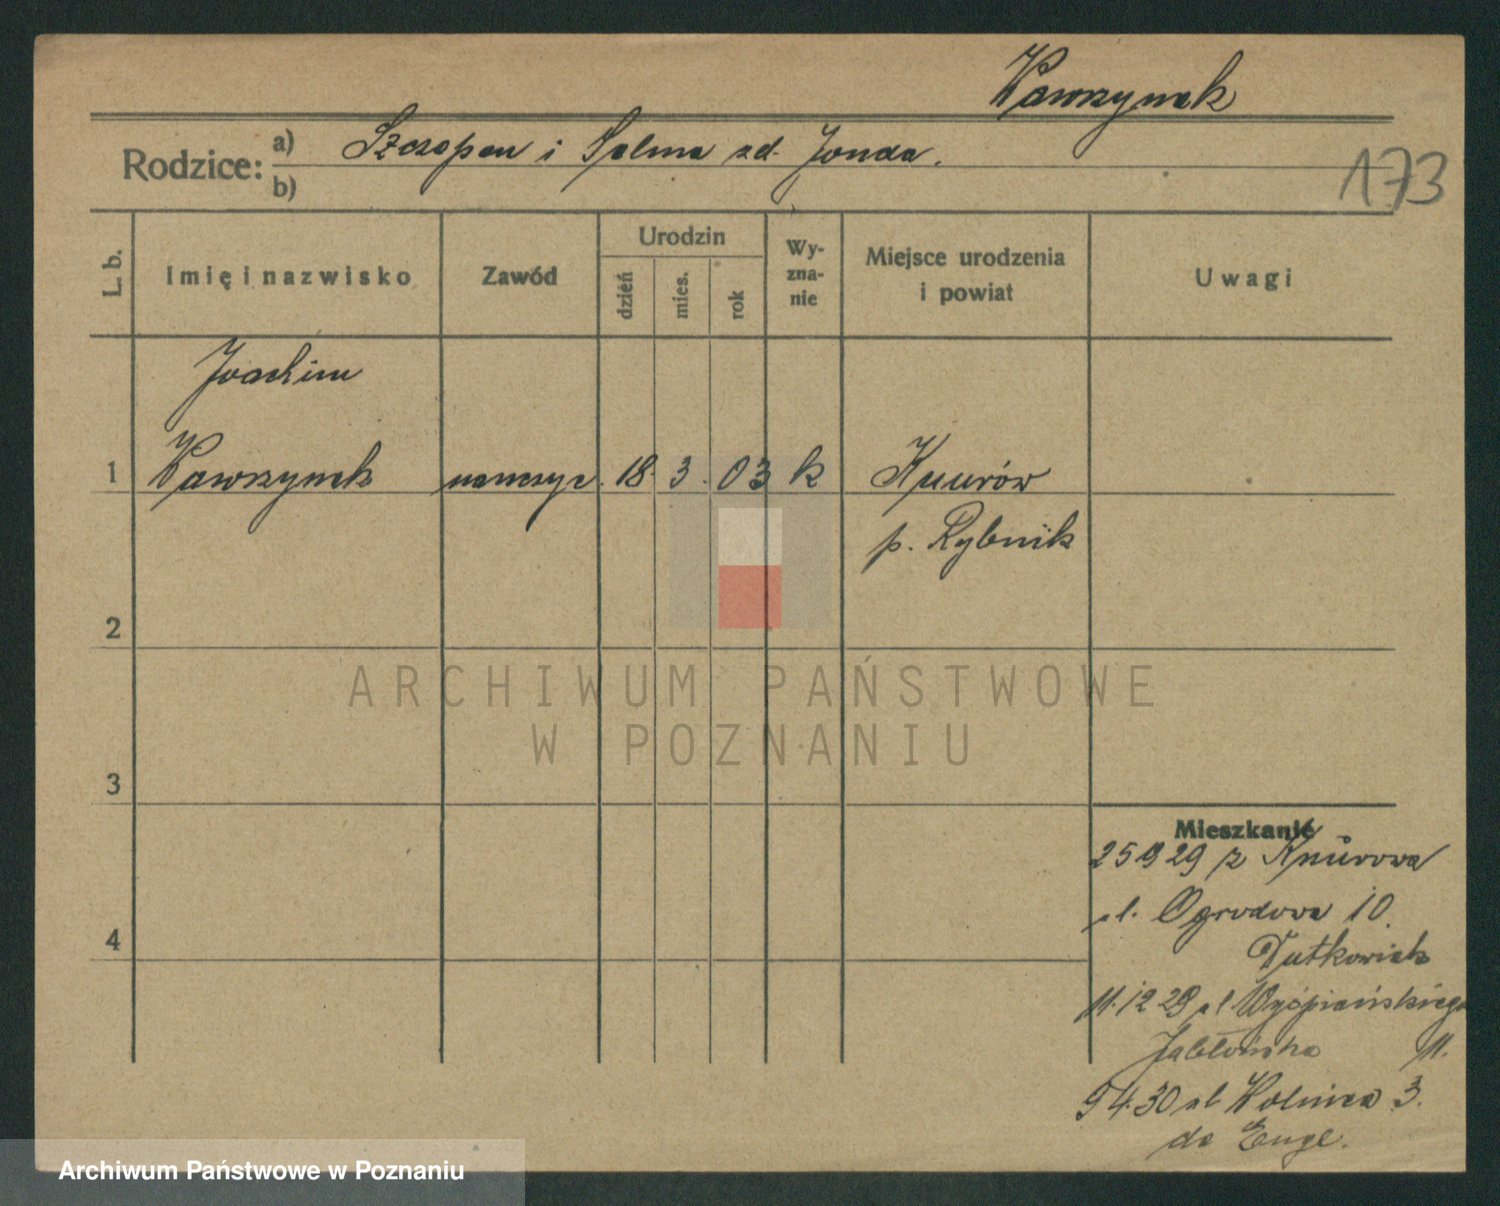 Wawrzynek
Rodzice: a) Szczepan i Salma zd. Jonda.
b)
173
L. b.
Imię i nazwisko
Zawód
Urodzin
dzień
mies.
rok
Wy-
zna-
nie
Miejsce urodzenia
i powiat
Uwagi
Joachim
1 Wawrzynek nauczyc. 18. 3. 03 k Knurów
p. Rybnik
2
3
4
Mieszkanie
25 9 29 z Knurowa
ul. Ogrodowa 10.
11.12 29 ul Wyśpiańskiego
Jabłońska 11.
9 4 30 ul Wolnica 3.
do Enge.
ARCHIWUM PAŃSTWOWE
W POZNANIU
Archiwum Państwowe w Poznaniu